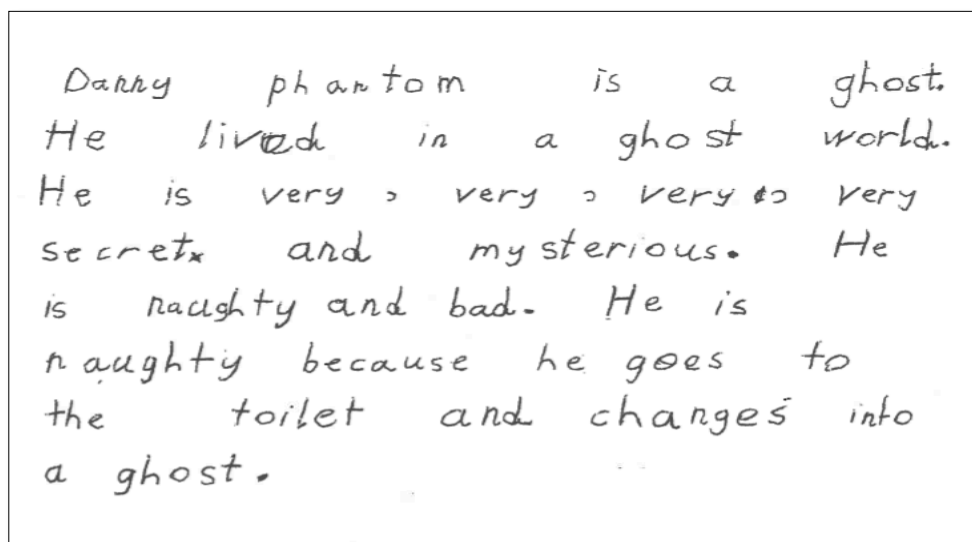 Danny phantom is a ghost.
He lived in a ghost world.
He is very , very , very , very
secret and mysterious. He
is naughty and bad. He is
naughty because he goes to
the toilet and changes into
a ghost.